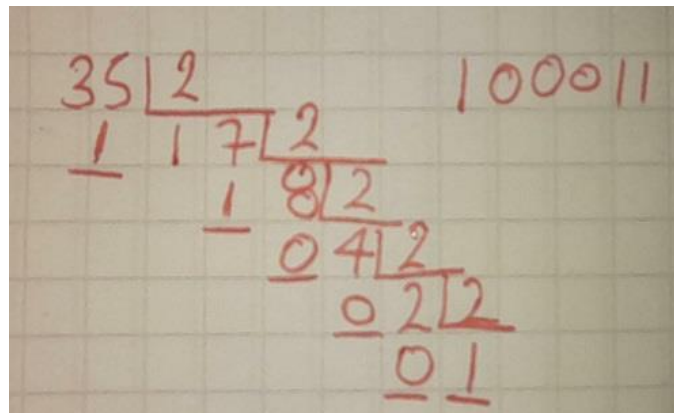 35 2 100011
1 17 2
1 8 2
0 4 2
0 2 2
0 1